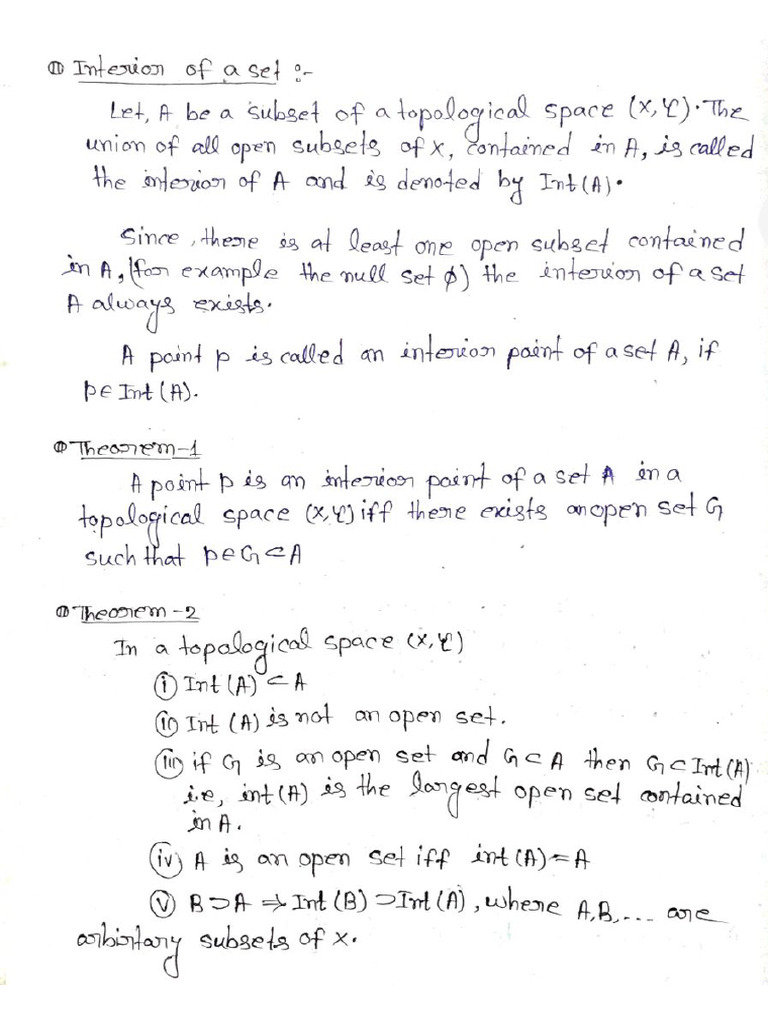 Interior of a set :-
Let, A be a subset of a topological space (X, τ). The
union of all open subsets of X, contained in A, is called
the interior of A and is denoted by Int(A).
Since, there is at least one open subset contained
in A, (for example the null set ϕ) the interior of a set
A always exists.
A point p is called an interior point of a set A, if
p∈ Int(A).
Theorem-1
A point p is an interior point of a set A in a
topological space (X, τ) iff there exists an open set G
such that p∈G⊂A
Theorem-2
In a topological space (X, τ)
(i) Int(A) ⊂ A
(ii) Int (A) is not an open set.
(iii) if G is an open set and G⊂A then G⊂Int(A)
i.e, int(A) is the largest open set contained
in A.
(iv) A is an open set iff int(A)=A
(v) B⊃A ⇒ Int(B)⊃Int(A), where A,B,... are
arbirtary subsets of X.